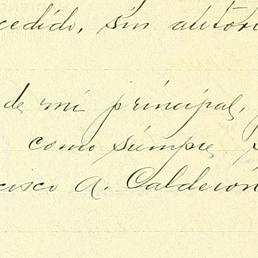 cedido, sin
de mi principal,
como siempre,
cisco A. Calderón